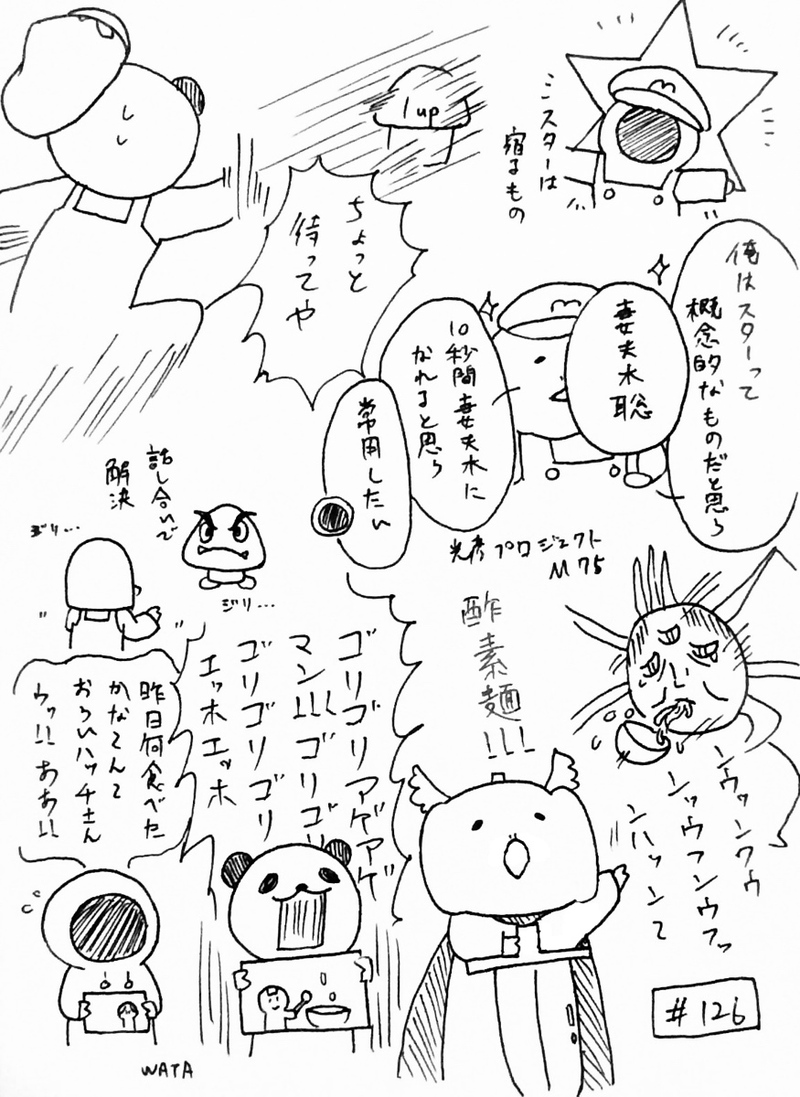 1up
ミスターは
宿るもの
ちょっと
待ってや
俺はスターって
概念的なものだと思う
妻夫木聡
10秒間妻夫木に
なれると思う
常用したい
話し合いで
解決
ジリ…
ジリ…
光彦プロジェクト
M75
酢素麺!!!
ンウッンクウ
ンッウフンウフッ
ンハッンて
ゴリゴリアゲアゲ
マン!!!ゴリゴリ
ゴリゴリゴリ
エッホエッホ
昨日何食べた
かなてんて
おろいハッチさん
ウッ!!ああ!!
#126
WATA